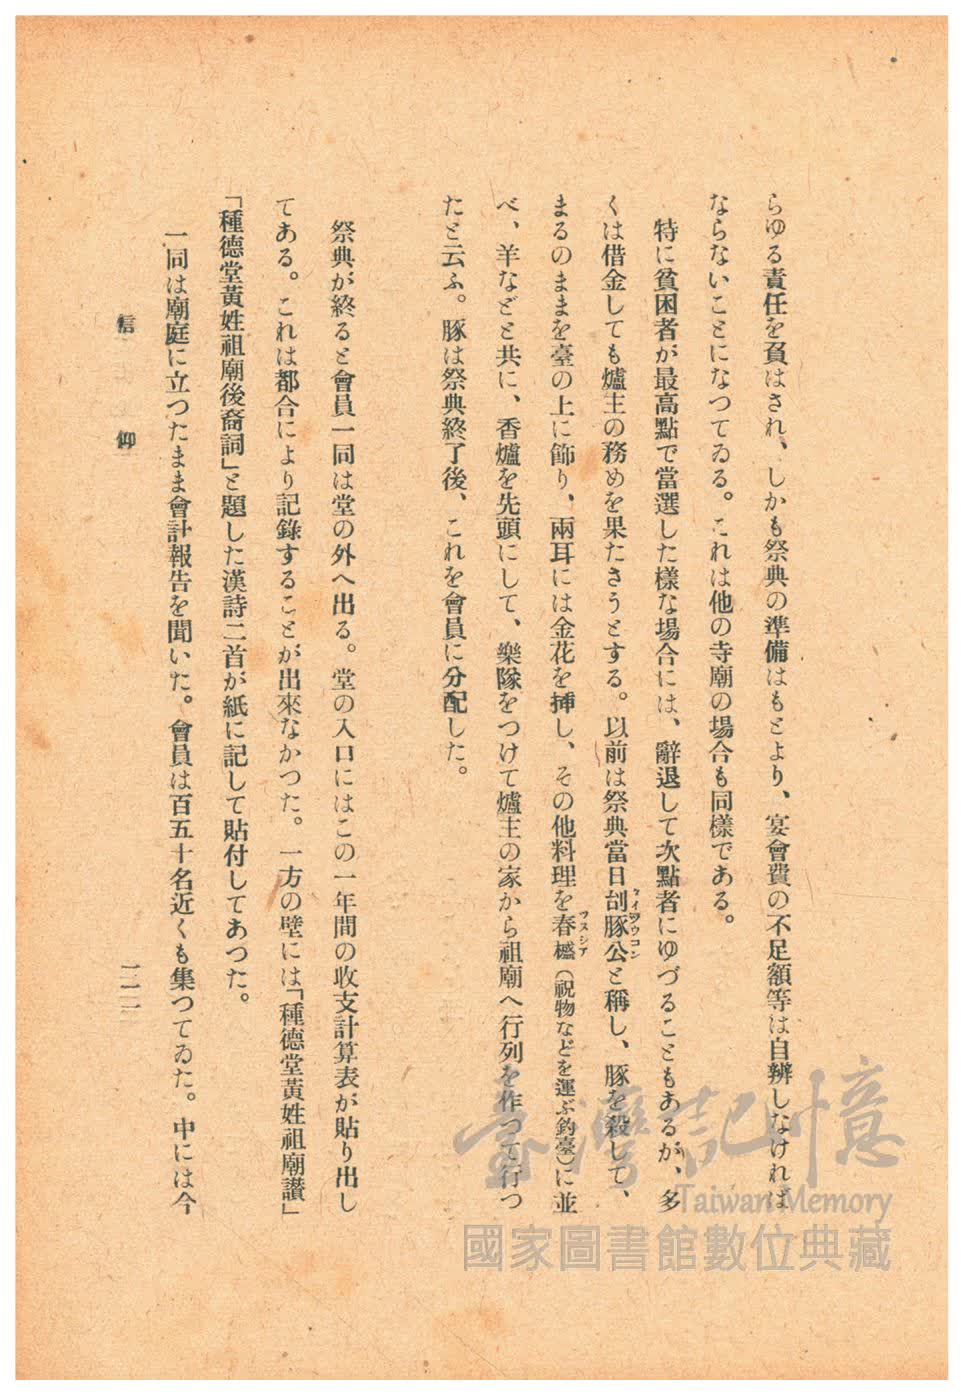 らゆる責任を負はされ、しかも祭典の準備はもとより、宴會費の不足額等は自辨しなければ
ならないことになつてゐる。これは他の寺廟の場合も同様である。
特に貧困者が最高點で當選した様な場合には、辭退して次點者にゆづることもあるが、多
くは借金しても爐主の務めを果たさうとする。以前は祭典當日刣豚公と稱し、豚を殺して、
まるのままを臺の上に飾り、兩耳には金花を挿し、その他料理を春槛（祝物などを運ぶ釣臺）に並
べ、羊などと共に、香爐を先頭にして、樂隊をつけて爐主の家から祖廟へ行列を作つて行つ
たと云ふ。豚は祭典終了後、これを會員に分配した。
祭典が終ると會員一同は堂の外へ出る。堂の入口にはこの一年間の收支計算表が貼り出し
てある。これは都合により記錄することが出來なかつた。一方の壁には「種德堂黃姓祖廟讃」
「種德堂黃姓祖廟後裔詞」と題した漢詩二首が紙に記して貼付してあつた。
一同は廟庭に立つたまま會計報告を聞いた。會員は百五十名近くも集つてゐた。中には今
信仰
臺灣記憶
Taiwan Memory
國家圖書館數位典藏